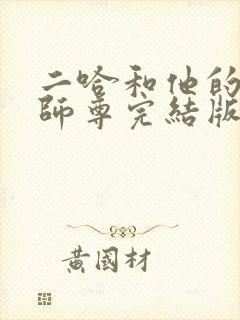 二哈和他的
師尊完結版
黃國材